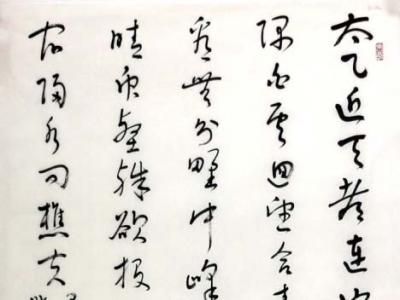 太乙近天都连山
隅白云回望合青
霭无分野中峰
晴阴众壑殊欲投
宿隔水问樵夫